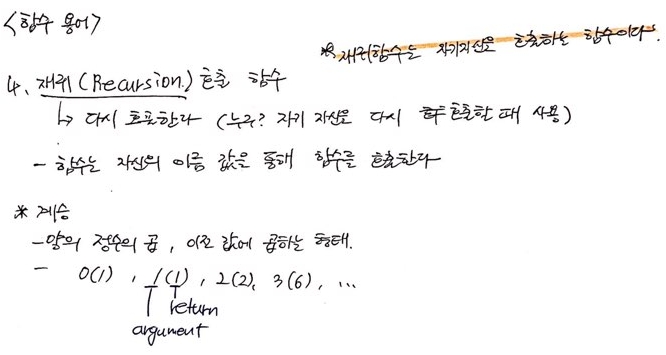 <함수 용어>
* 재귀함수는 자기자신을 호출하는 함수이다.
4. 재귀 (Recursion) 호출 함수
↳ 다시 호출한다 (누구? 자기 자신을 다시 호출할 때 사용)
- 함수는 자신의 이름 값을 통해 함수를 호출한다
* 계승
- 양의 정수의 곱, 이전 값에 곱하는 형태.
- 0(1), 1(1), 2(2), 3(6), ...
return
argument